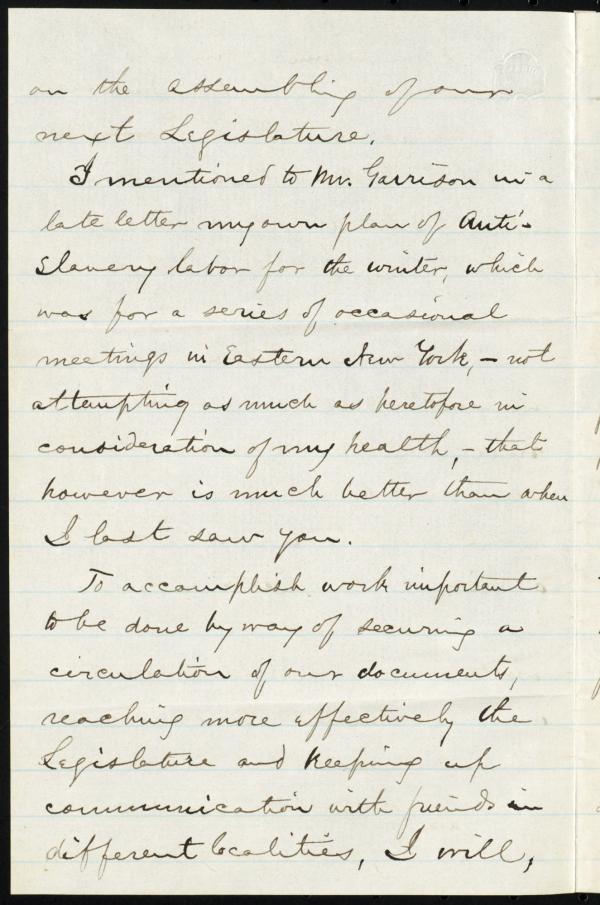 on the assembling of our
next Legislature.
I mentioned to Mr. Garrison in a
late letter my own plan of Anti-
Slavery labor for the winter, which
was for a series of occasional
meetings in Eastern New York, – not
attempting as much as heretofore in
consideration of my health, – that
however is much better than when
I last saw you.
To accomplish work important
to be done by way of securing a
circulation of our documents,
reaching more effectively the
Legislature and keeping up
communication with friends in
different localities, I will,